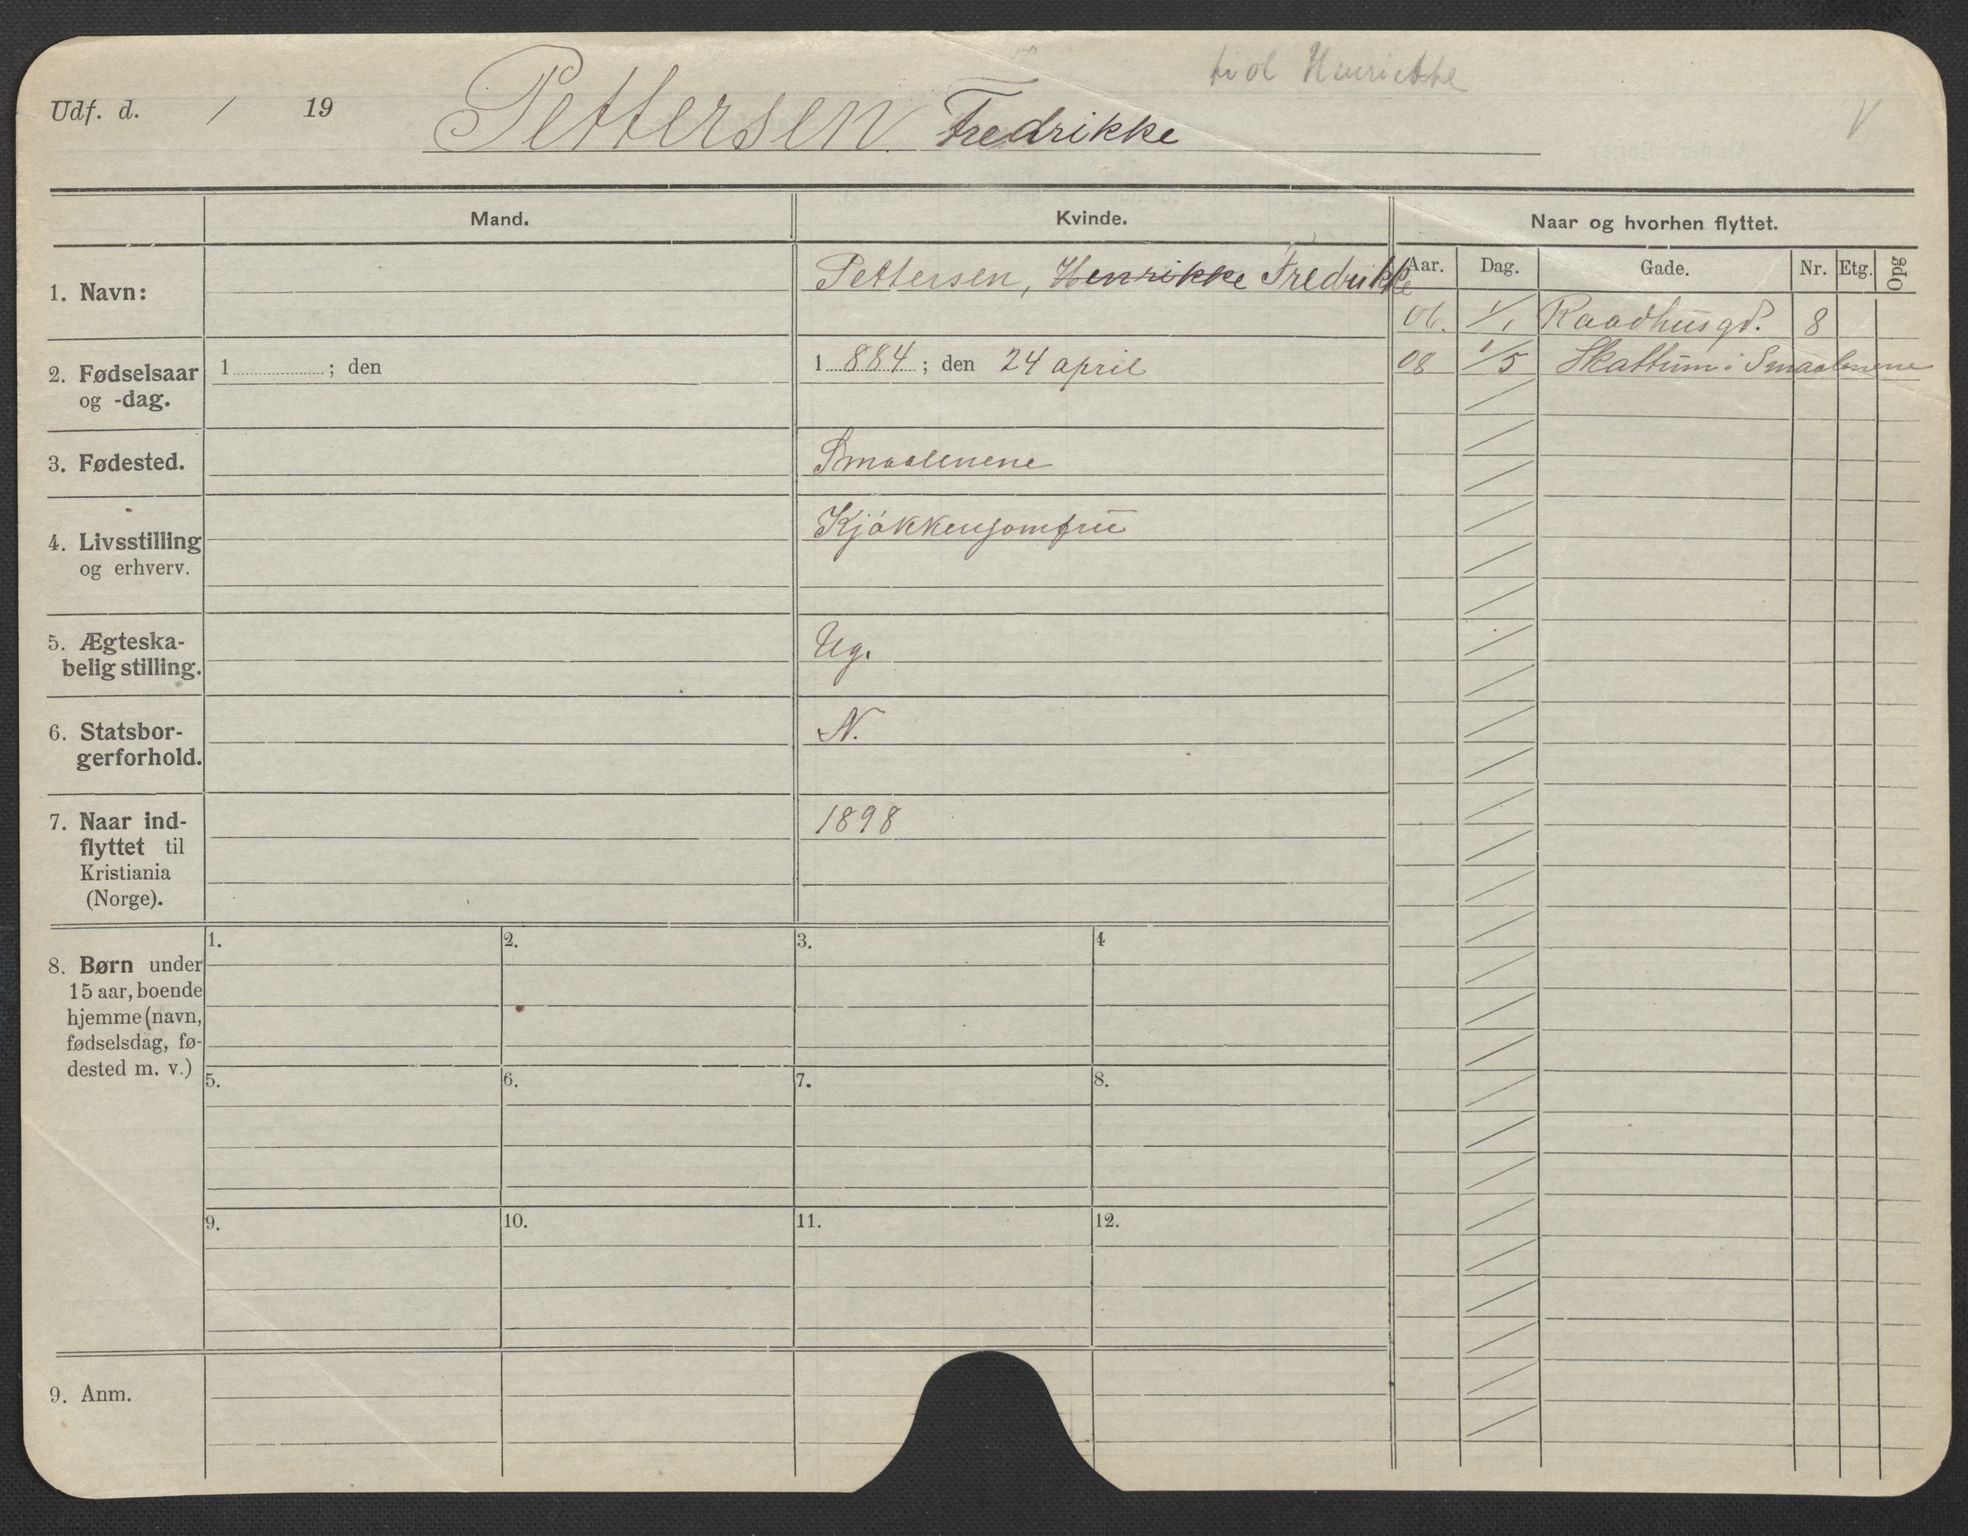 Udf. d. / 19
Pettersen Fredrikke
Henriette
V
Mand.
Kvinde.
Naar og hvorhen flyttet.
Aar. Dag. Gade. Nr. Etg. Opg
1. Navn:
Pettersen, Henrikke Fredrikke
06. 1/1 Raadhusgd. 8
08 1/5 Skattum i Smaalenene
2. Fødselsaar
og -dag.
1 ; den
1 884 ; den 24 april
3. Fødested.
Smaalenene
4. Livsstilling
og erhverv.
Kjøkkenjomfru
5. Ægteska-
belig stilling.
Ug.
6. Statsbor-
gerforhold.
N.
7. Naar ind-
flyttet til
Kristiania
(Norge).
1898
8. Børn under
15 aar, boende
hjemme (navn,
fødselsdag, fø-
dested m. v.)
1. 2. 3. 4
5. 6. 7. 8.
9. 10. 11. 12.
9. Anm.